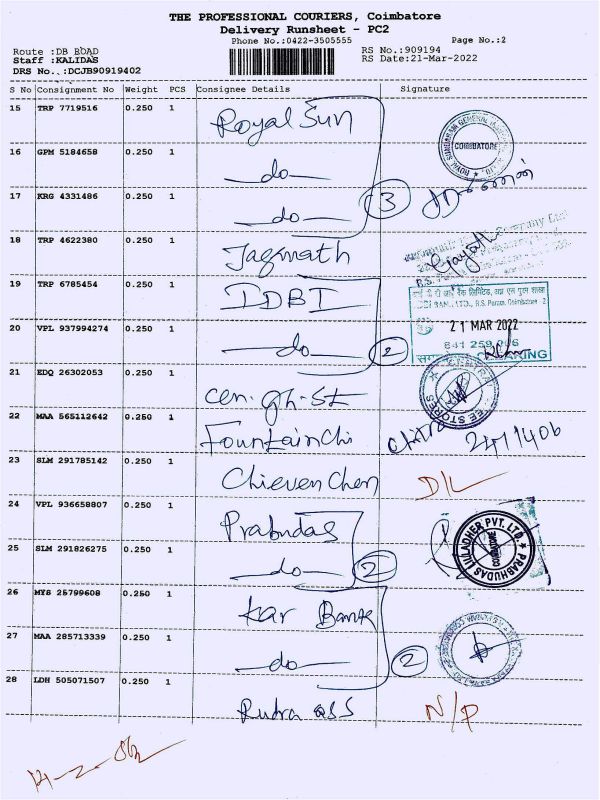 THE PROFESSIONAL COURIERS, Coimbatore
Delivery Runsheet - PC2
Phone No.:0422-3505555
Page No.:2
Route :DB ROAD
RS No.:909194
Staff :KALIDAS
RS Date:21-Mar-2022
DRS No..:DCJB90919402
S No Consignment No Weight PCS Consignee Details Signature
15 TRP 7719516 0.250 1 Royal Sun
COIMBATORE
16 GPM 5184658 0.250 1 —do—
17 KRG 4331486 0.250 1 —do— 3
18 TRP 4622380 0.250 1 Jagnnath
19 TRP 6785454 0.250 1 IDBI
20 VPL 937994274 0.250 1 —do— 2
21 MAR 2022
21 EDQ 26302053 0.250 1 Cen. Gh. St
22 MAA 565112642 0.250 1 Fountain Chi
Chitra
23 SLM 291785142 0.250 1 Chieven Chen D/L
24 VPL 936658807 0.250 1 Prabudas
PRABHUDAS LILADHER PVT. LTD.
COIMBATORE
25 SLM 291826275 0.250 1 —do— 2
26 MYS 25799608 0.250 1 Kar Bank
27 MAA 285713339 0.250 1 —do— 2
28 LDH 505071507 0.250 1 Rudra ass N/P